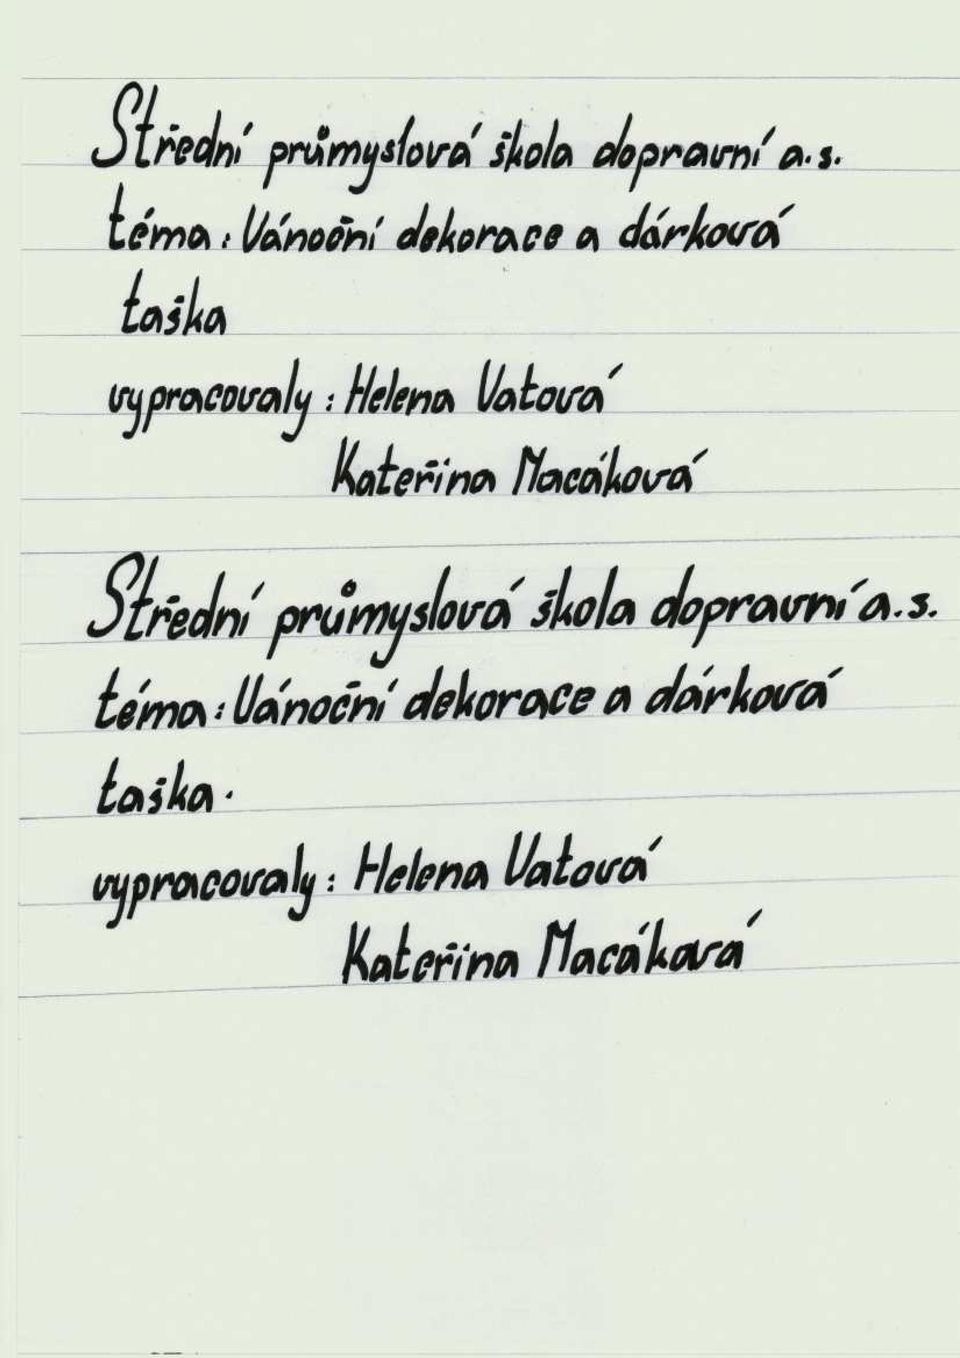 Střední průmyslová škola dopravní a.s.
téma: Vánoční dekorace a dárková
taška
vypracovaly: Helena Vatová
Kateřina Macáková
Střední průmyslová škola dopravní a.s.
téma: Vánoční dekorace a dárková
taška.
vypracovaly: Helena Vatová
Kateřina Macáková